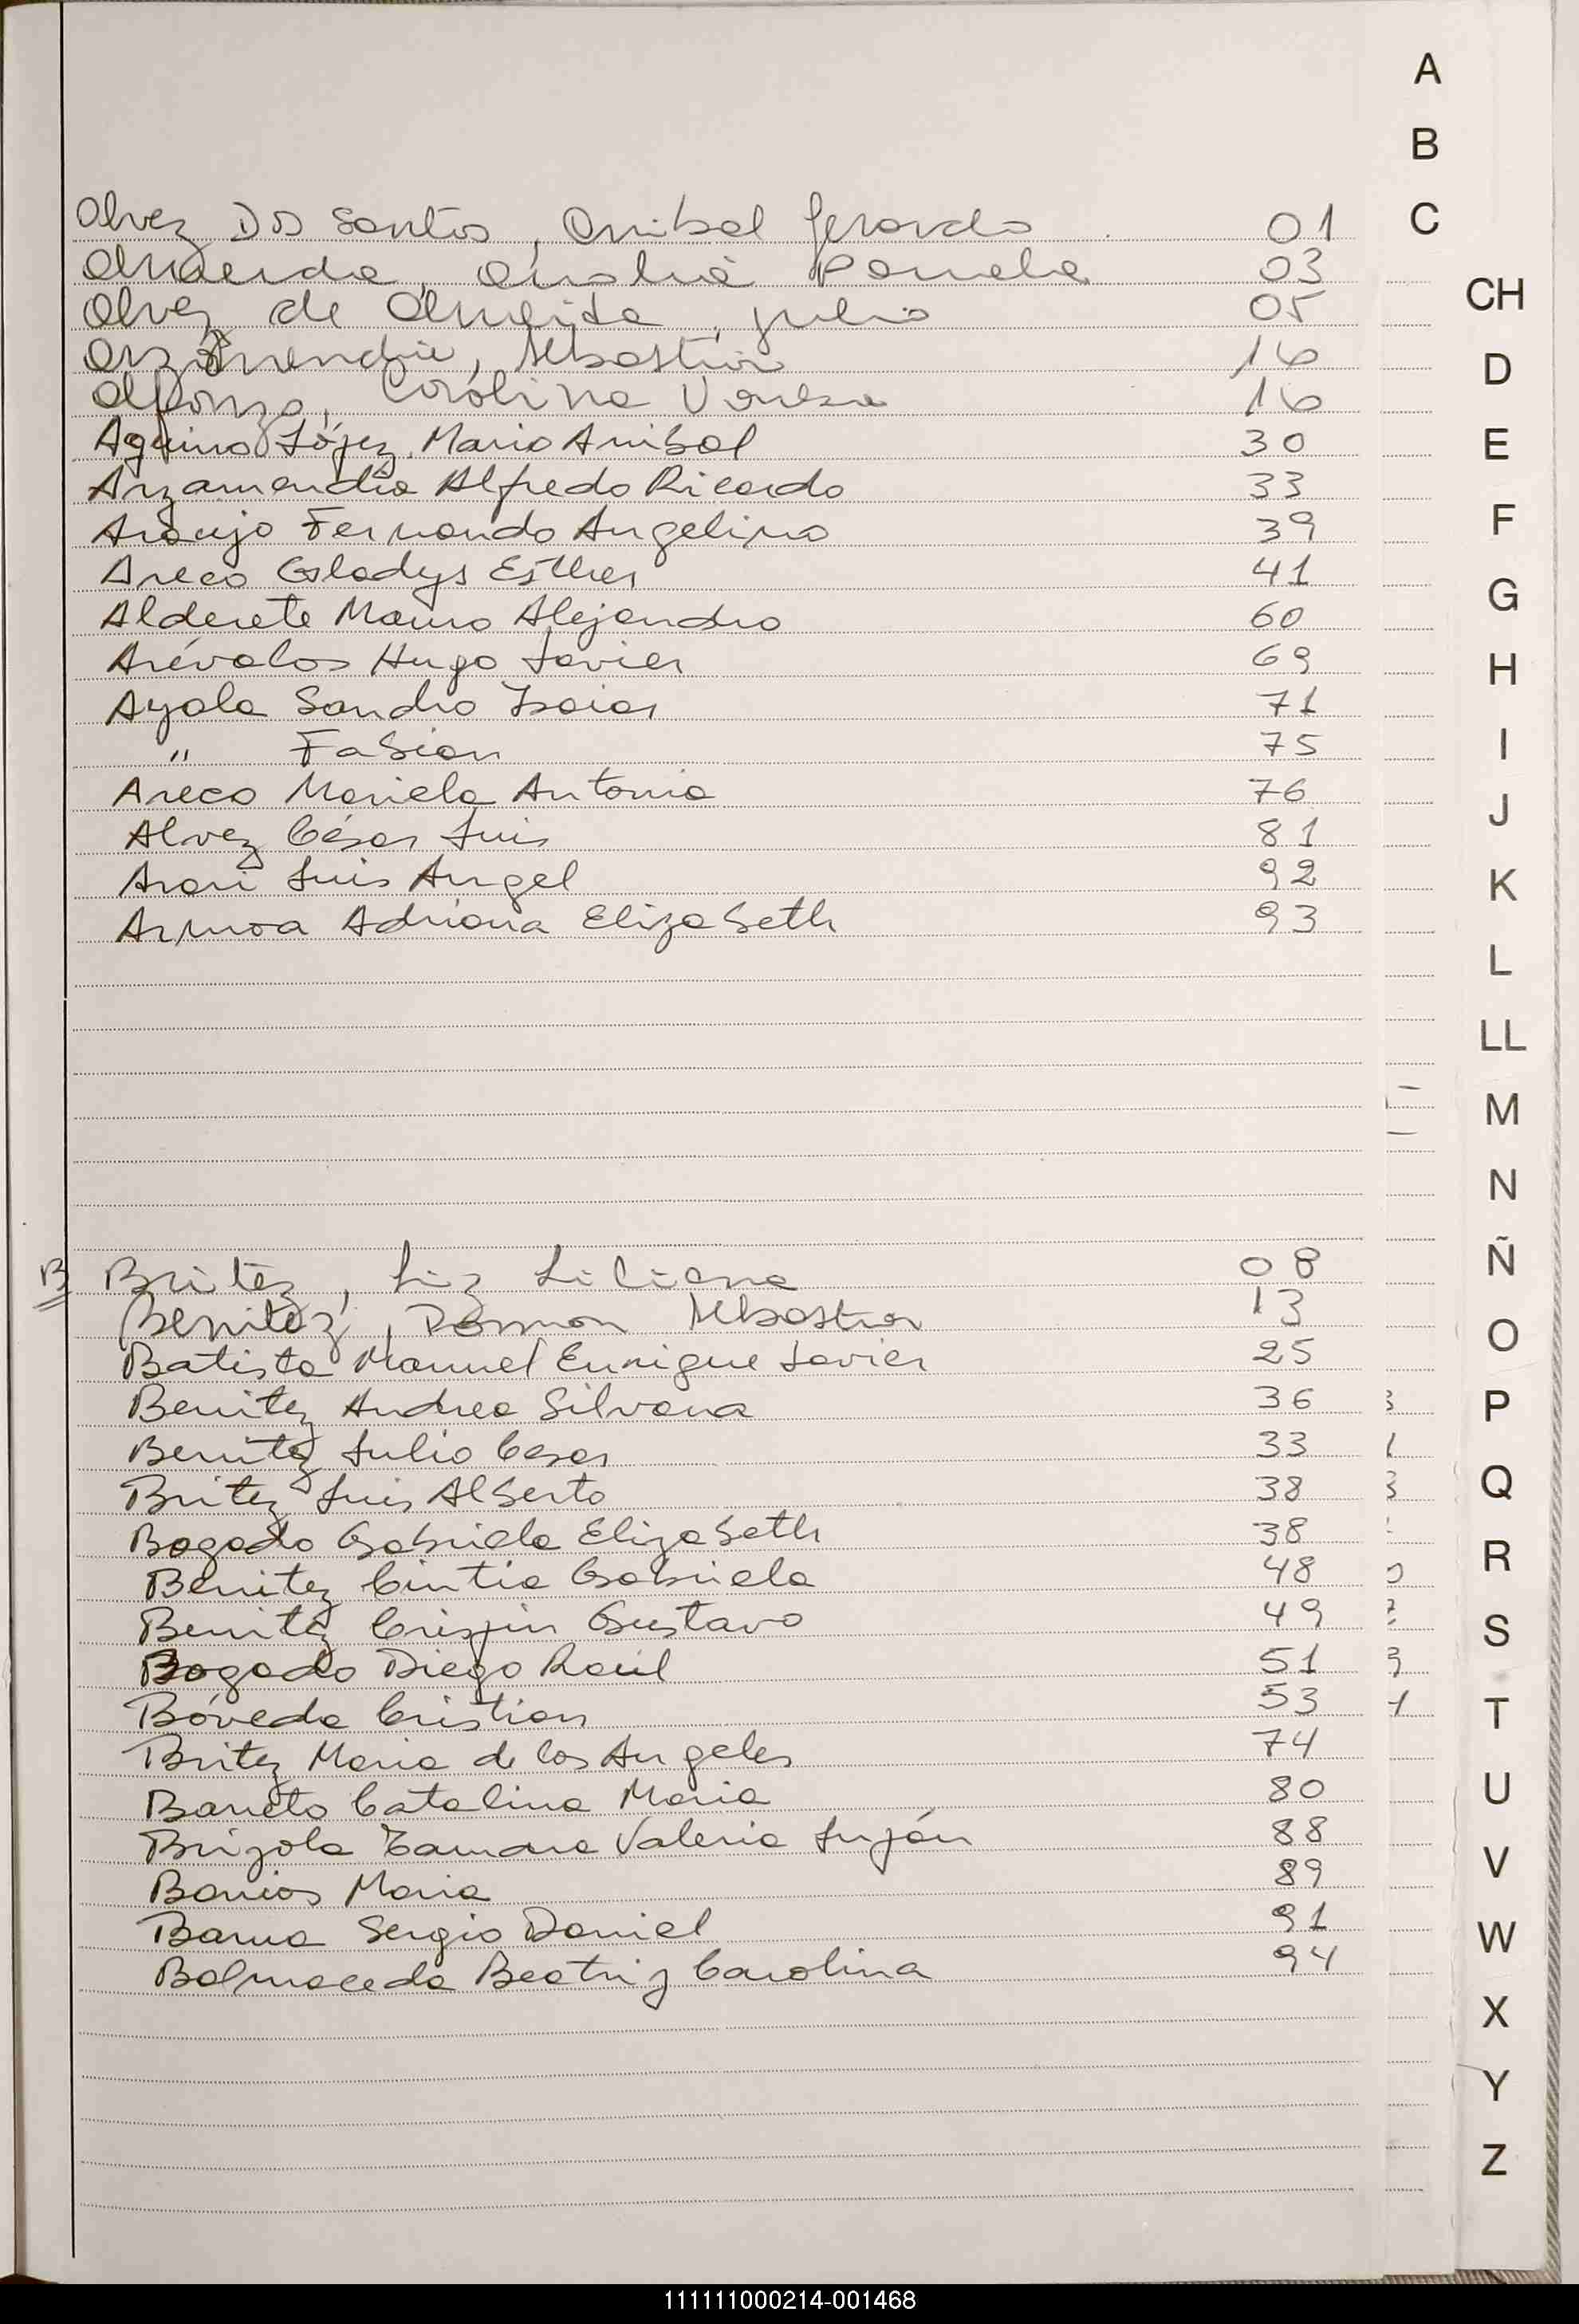 A
B
C
CH
D
E
F
G
H
I
J
K
L
LL
M
N
Ñ
O
P
Q
R
S
T
U
V
W
X
Y
Z
Alvez Dos Santos, Anibal Gerardo 01
Almeida, Analia Pamela 03
Alvez de Almeida, Julio 05
Arzamendia, Sebastian 16
Alfonzo, Carolina Vanesa 16
Aquino López, Mario Anibal 30
Arzamendia Alfredo Ricardo 33
Araujo Fernando Angelino 39
Areco Gladys Esther 41
Alderete Mauro Alejandro 60
Arévalos Hugo Javier 69
Ayala Sandro Isaias 71
" Fabian 75
Areco Mariela Antonia 76
Alvez César Luis 81
Arari Luis Angel 92
Armoa Adriana Elizabeth 93
B Britez, Liz Liliana 08
Benitez, Damian Sebastian 13
Batista Manuel Enrique Javier 25
Benitez Andrea Silvana 36
Benitez Julio Cesar 33
Britez Luis Alberto 38
Bogado Gabriela Elizabeth 38
Benitez Cintia Gabriela 48
Benitez Crispin Gustavo 49
Bogado Diego Raúl 51
Bóveda Cristian 53
Britez Maria de los Angeles 74
Barreto Catalina Maria 80
Brizola Tamara Valeria Luján 88
Barrios Maria 89
Barua Sergio Daniel 91
Balmaceda Beatriz Carolina 94
111111000214-001468